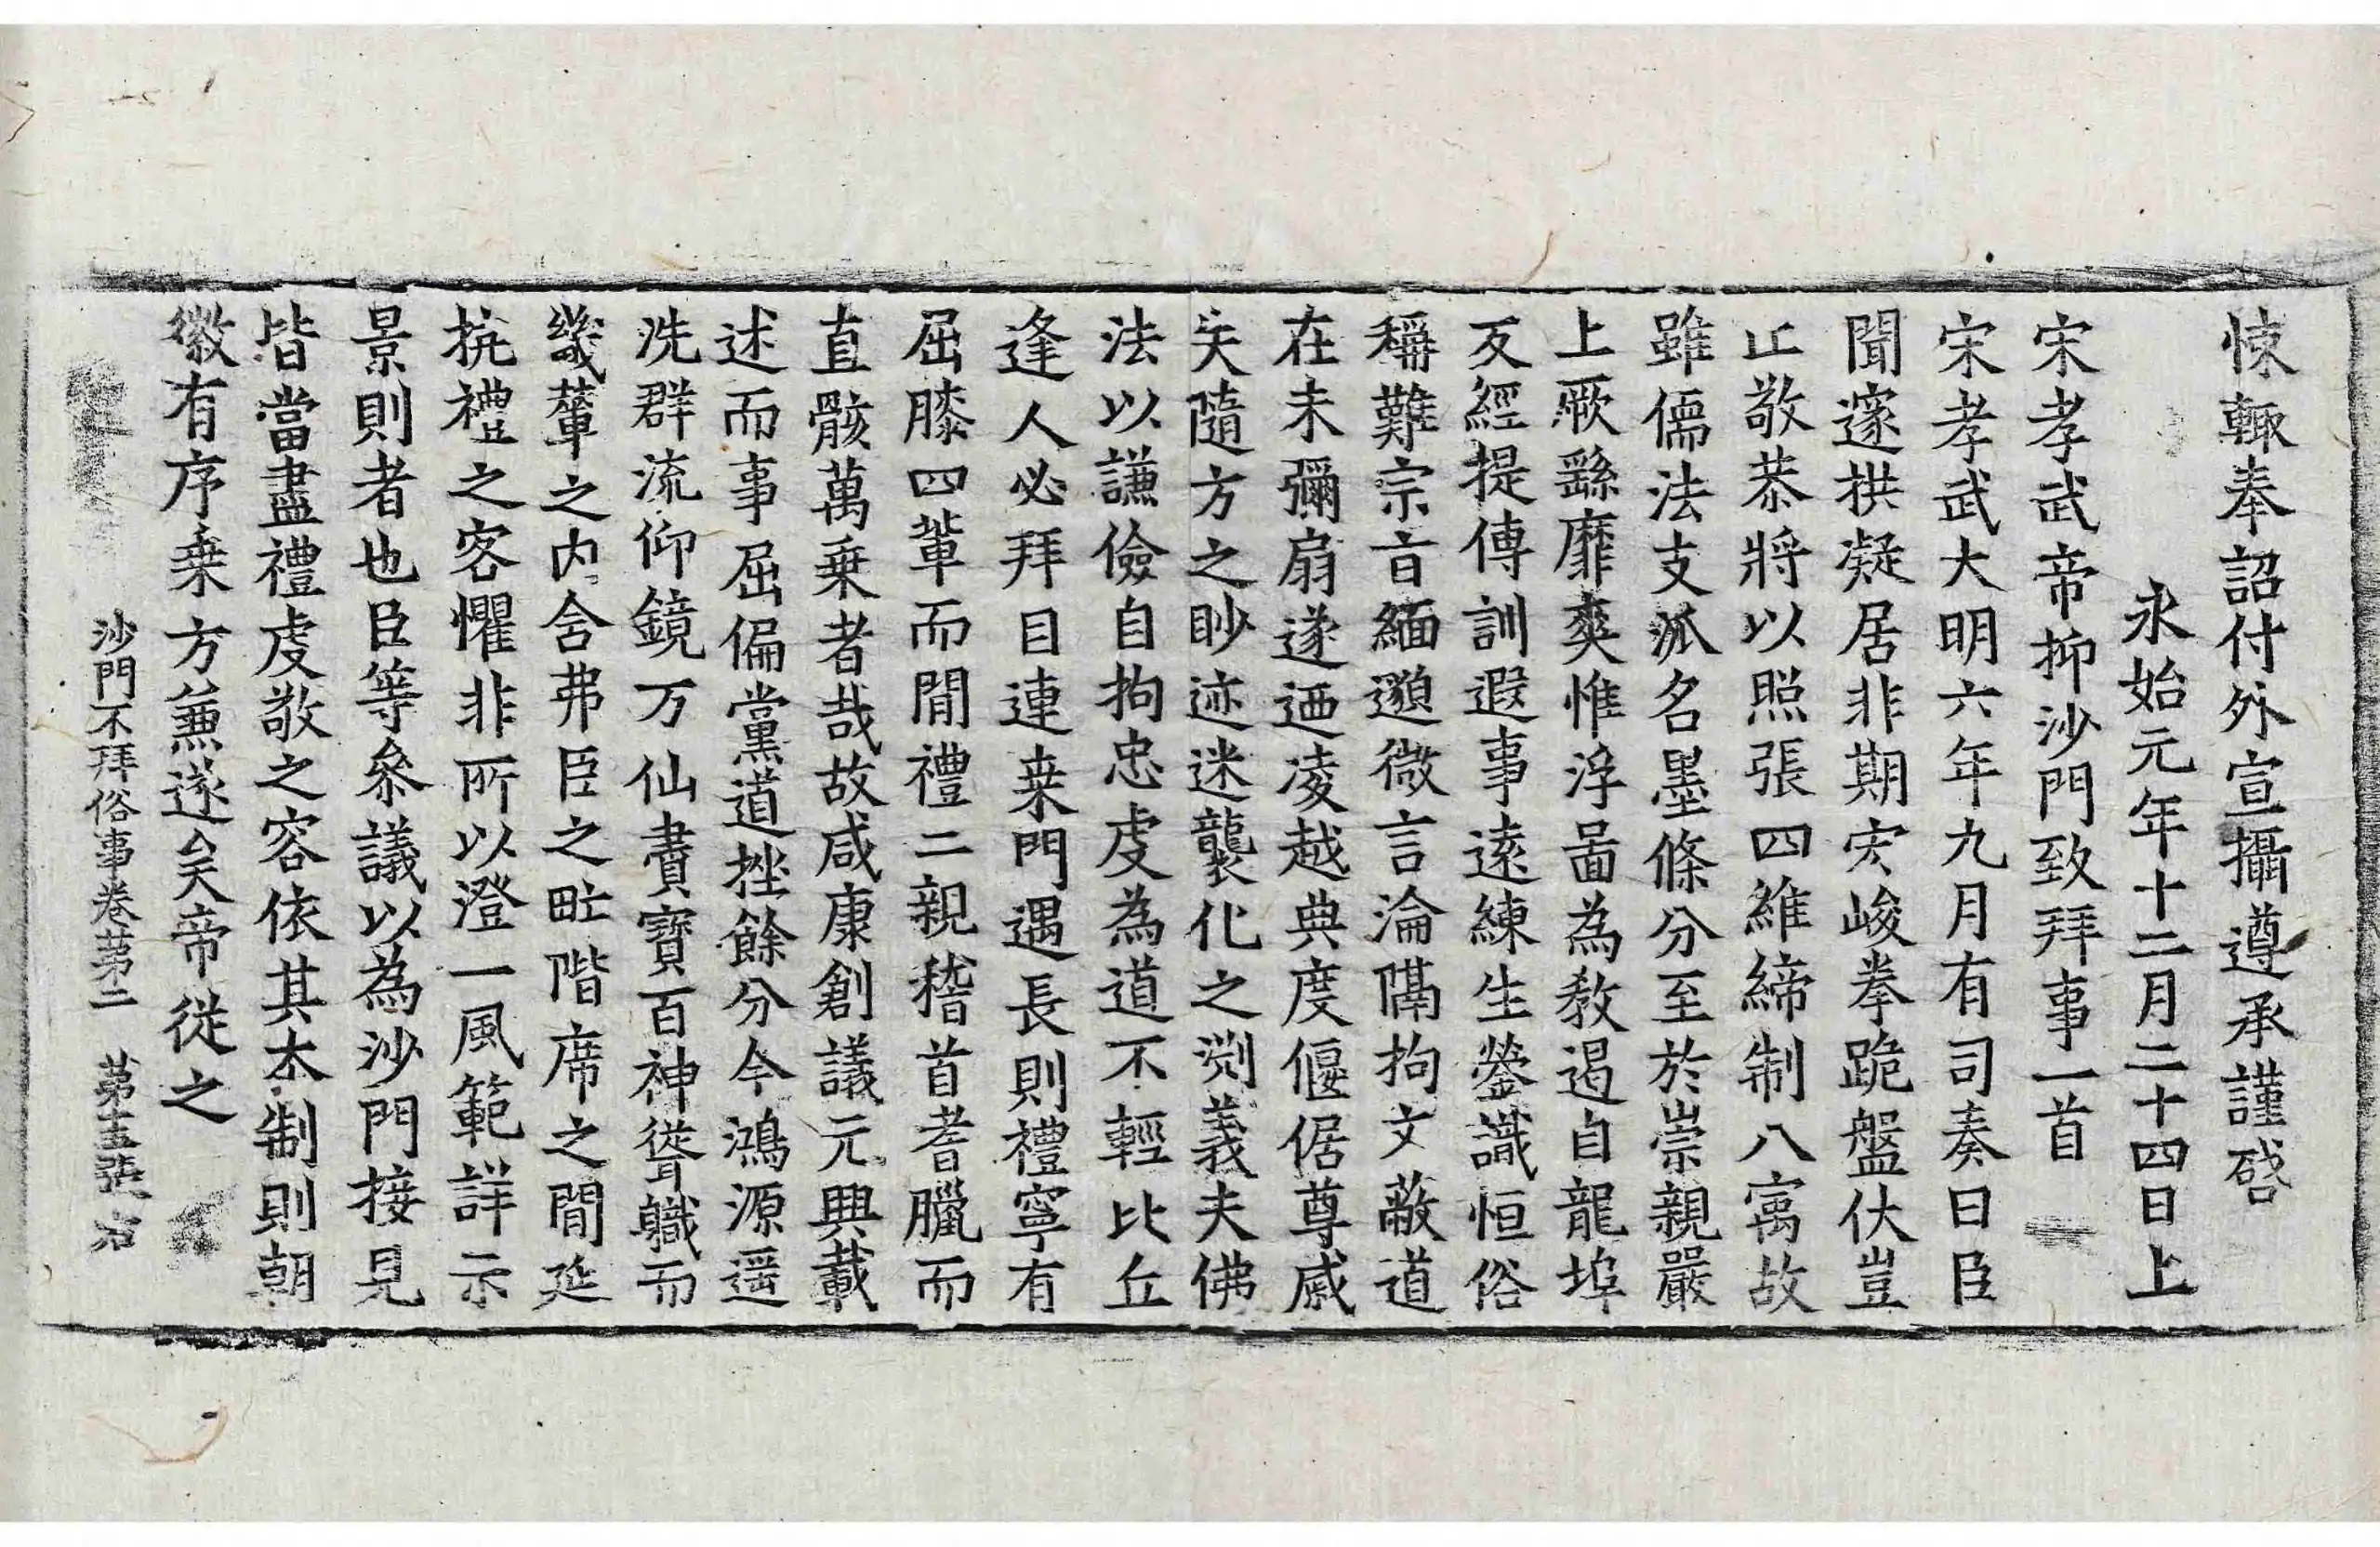 悚輙奉詔付外宣攝遵承謹啓
永始元年十二月二十四日上
宋孝武帝抑沙門致拜事一首
宋孝武大明六年九月有司奏曰臣
聞邃拱凝居非期宏峻拳跪盤伏豈
止敬恭將以照張四維締制八㝢故
雖儒法支派名墨條分至於崇親嚴
上厥繇靡爽惟浮啚為教逷自龍埠
反經提傳訓遐事遠練生瑩識恒俗
稱難宗㫖緬邈微言淪隔拘文蔽道
在未彌扇遂迺凌越典度偃倨尊戚
失隨方之眇迹迷襲化之渕義夫佛
法以謙儉自拘忠虔為道不輕比丘
逢人必拜目連桒門遇長則禮寧有
屈膝四輩而閒禮二親稽首耆臘而
直骸萬乗者㢤故咸康創議元興載
述而事屈偏黨道挫餘分今鴻源遥
洗群流仰鏡万仙賮寶百神聳職而
畿輦之内含弗臣之甿階席之閒延
抗禮之客懼非所以澄一風範詳示
景則者也臣等叅議以為沙門接見
皆當盡禮虔敬之容依其本制則朝
徽有序乗方兼遂矣帝從之
沙門不拜俗事卷第二　第十五張　右